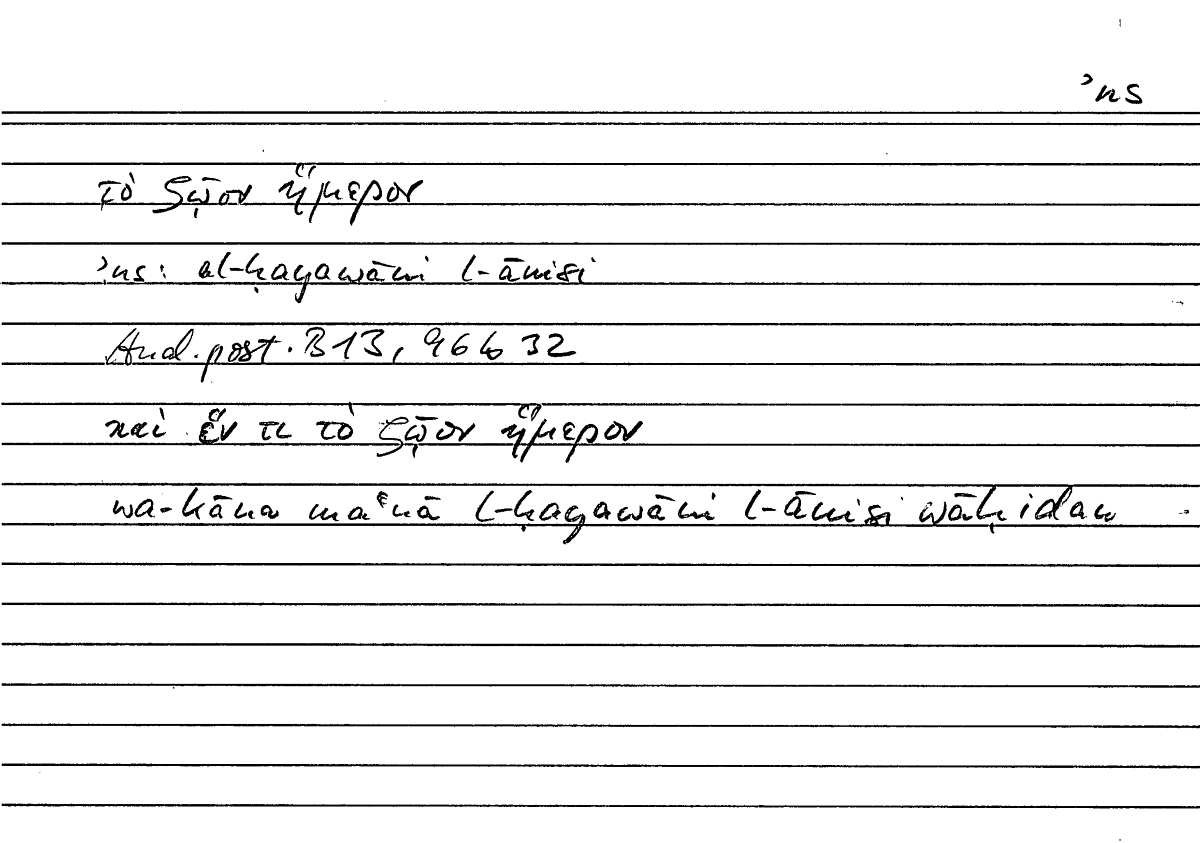 ʾns
τὸ ζῷον ἥμερον
ʾns: al-ḥayawāni l-ānisi
Anal. post. B13, 96b32
καὶ ἕν τι τὸ ζῷον ἥμερον
wa-kāna maʿnā l-ḥayawāni l-ānisi wāḥidan